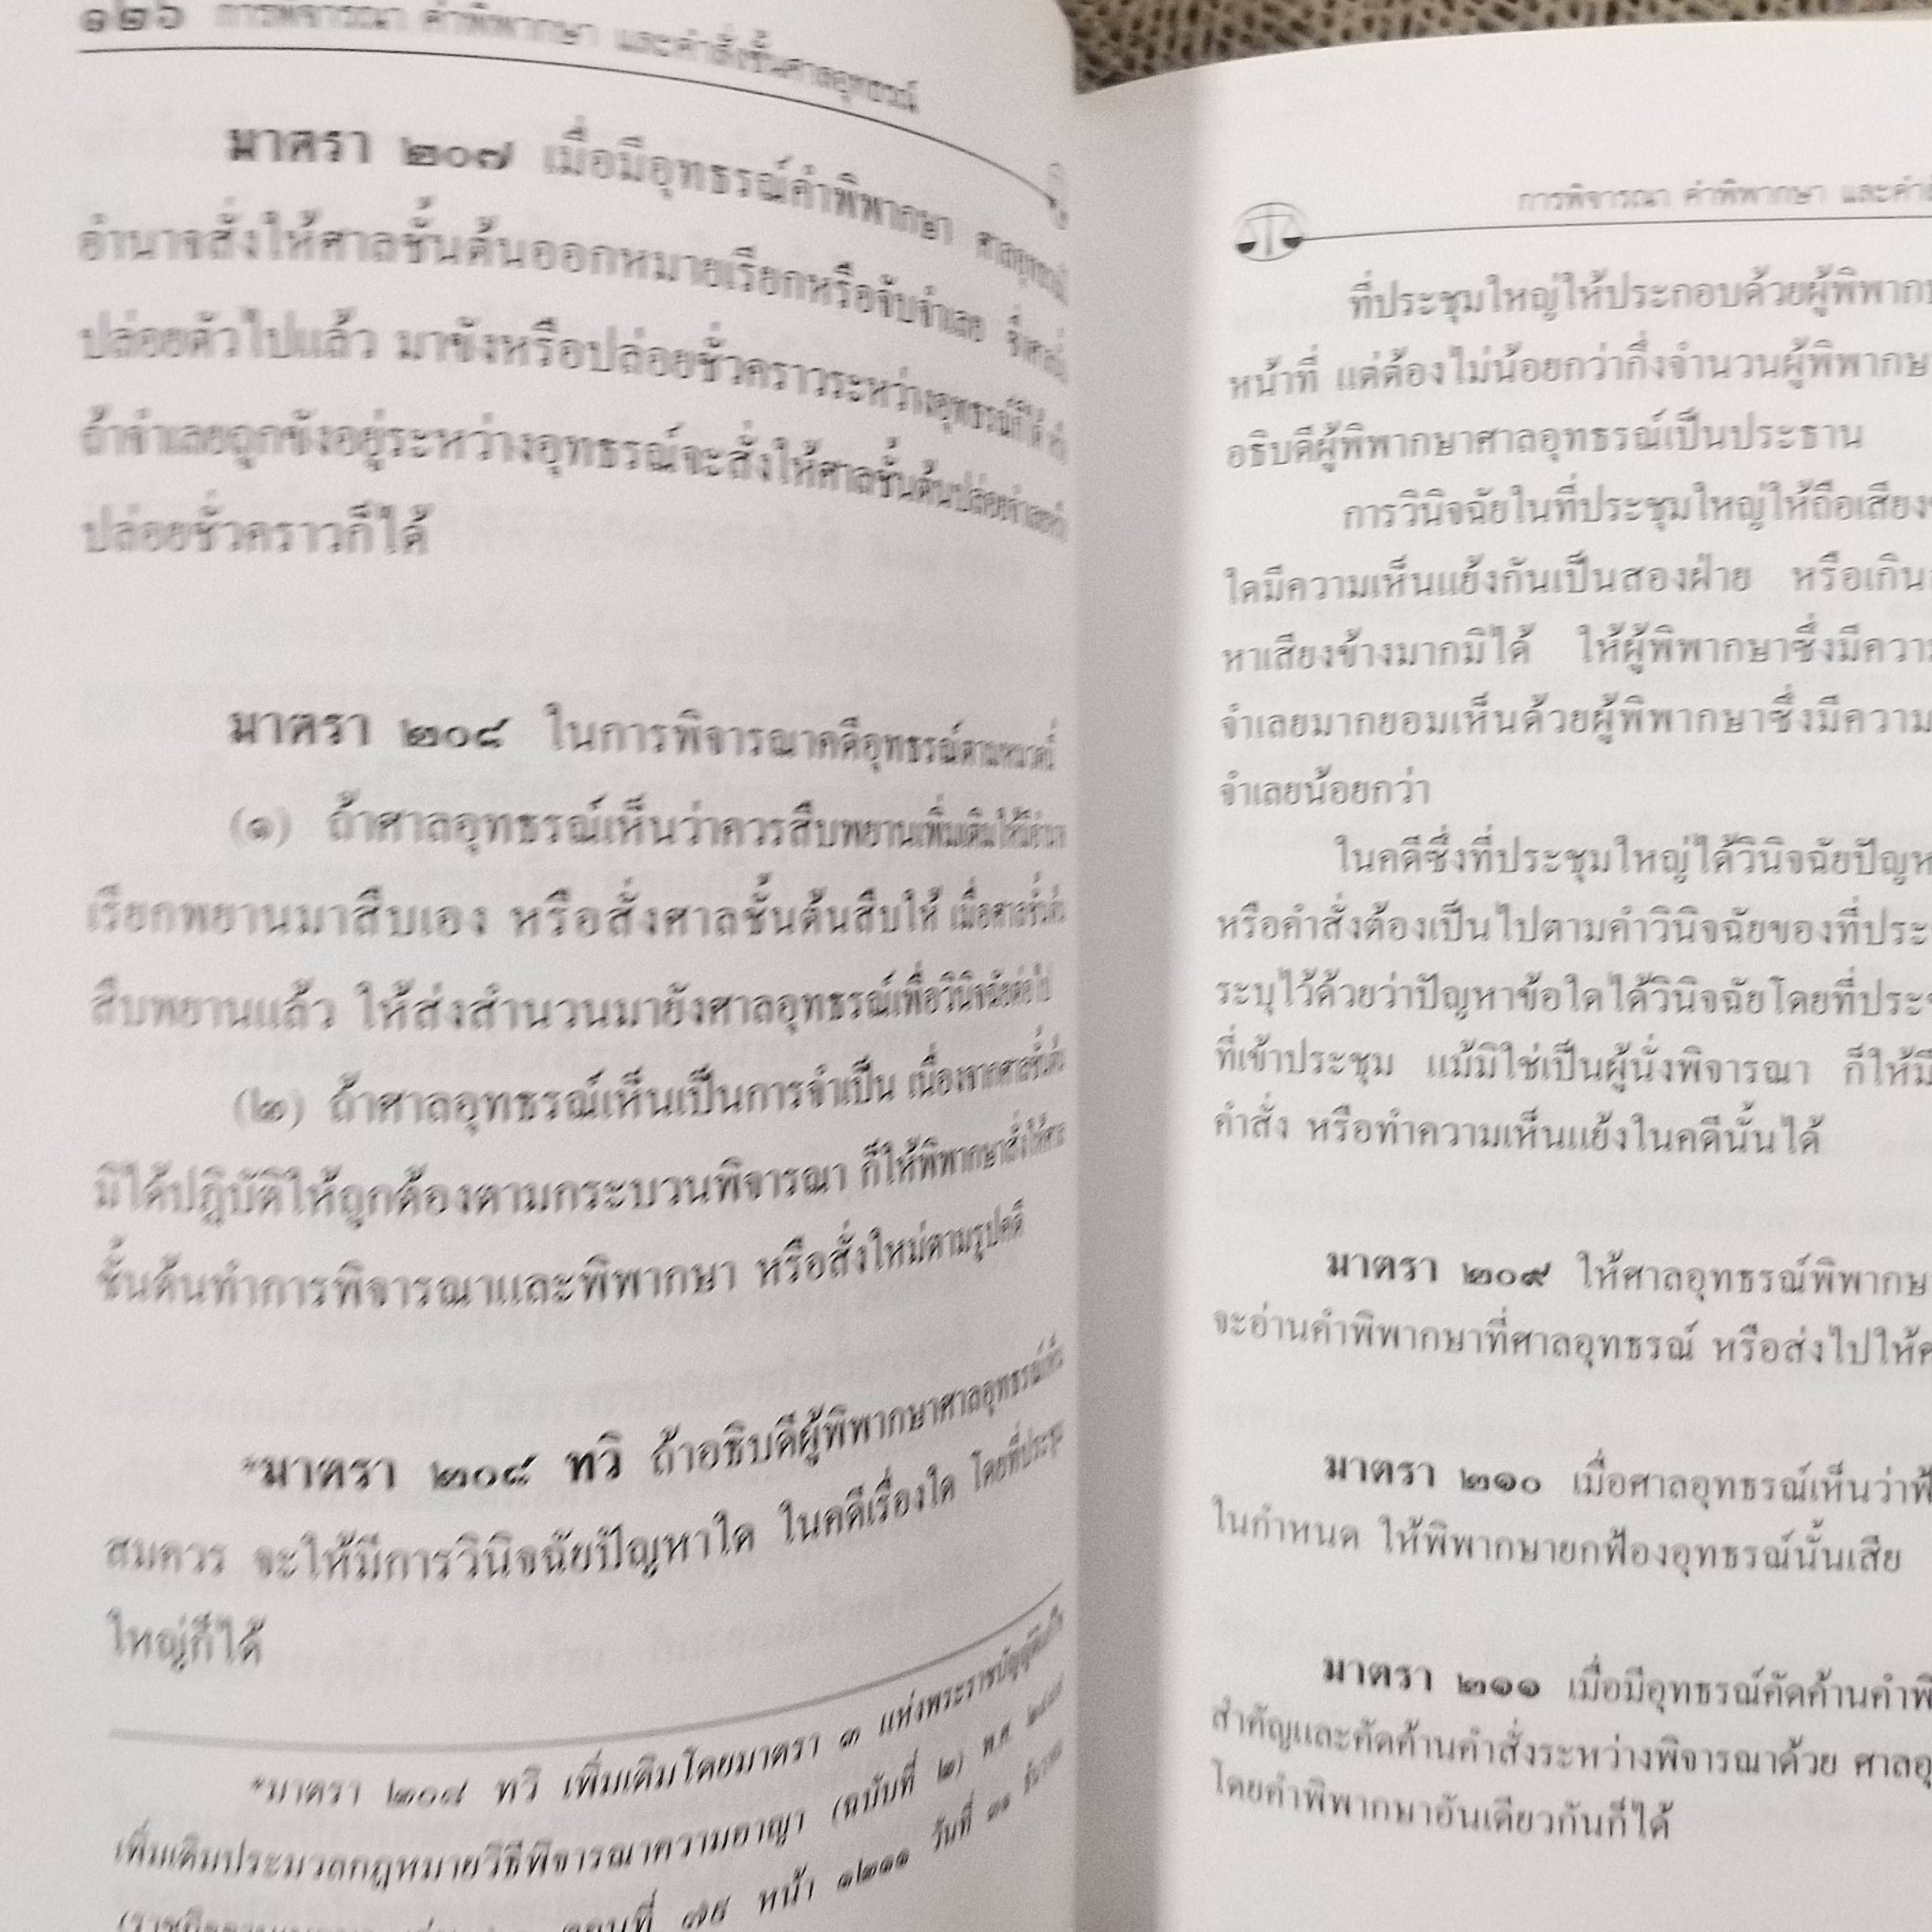 ๑๒๖ การพิจารณา คำพิพากษา และคำสั่งชั้นศาลอุทธรณ์
มาตรา ๒๐๗ เมื่อมีอุทธรณ์คำพิพากษา ศาลอุทธรณ์
อำนาจสั่งให้ศาลชั้นต้นออกหมายเรียกหรือจับจำเลย
ปล่อยตัวไปแล้ว มาขังหรือปล่อยชั่วคราวระหว่างอุทธรณ์ก็ได้
ถ้าจำเลยถูกขังอยู่ระหว่างอุทธรณ์จะสั่งให้ศาลชั้นต้นปล่อยจำเลย
ปล่อยชั่วคราวก็ได้
มาตรา ๒๐๘ ในการพิจารณาคดีอุทธรณ์ตามหมวดนี้
(๑) ถ้าศาลอุทธรณ์เห็นว่าควรสืบพยานเพิ่มเติม
เรียกพยานมาสืบเอง หรือสั่งศาลชั้นต้นสืบให้ เมื่อศาลชั้นต้น
สืบพยานแล้ว ให้ส่งสำนวนมายังศาลอุทธรณ์เพื่อวินิจฉัยต่อไป
(๒) ถ้าศาลอุทธรณ์เห็นเป็นการจำเป็น เนื่องจากศาลชั้นต้น
มิได้ปฏิบัติให้ถูกต้องตามกระบวนพิจารณา ก็ให้พิพากษาสั่งให้ศาล
ชั้นต้นทำการพิจารณาและพิพากษา หรือสั่งใหม่ตามรูปคดี
*มาตรา ๒๐๘ ทวิ ถ้าอธิบดีผู้พิพากษาศาลอุทธรณ์เห็น
สมควร จะให้มีการวินิจฉัยปัญหาใด ในคดีเรื่องใด โดยที่ประชุม
ใหญ่ก็ได้
*มาตรา ๒๐๘ ทวิ เพิ่มเติมโดยมาตรา ๓ แห่งพระราชบัญญัติ
เพิ่มเติมประมวลกฎหมายวิธีพิจารณาความอาญา (ฉบับที่ ๒) พ.ศ.
ตอนที่ ๗๕ หน้า ๑๒๑๑ วันที่ ๓๑
การพิจารณา คำพิพากษา และ
ที่ประชุมใหญ่ให้ประกอบด้วย
หน้าที่ แต่ต้องไม่น้อยกว่ากึ่งจำนวน
อธิบดีผู้พิพากษาศาลอุทธรณ์เป็นประธาน
การวินิจฉัยในที่ประชุมใหญ่ให้ถือเสียง
ใดมีความเห็นแย้งกันเป็นสองฝ่าย หรือเกิน
หาเสียงข้างมากมิได้ ให้ผู้พิพากษาซึ่งมี
จำเลยมากยอมเห็นด้วยผู้พิพากษาซึ่งมี
จำเลยน้อยกว่า
ในคดีซึ่งที่ประชุมใหญ่ได้วินิจฉัย
หรือคำสั่งต้องเป็นไปตามคำวินิจฉัยของ
ระบุไว้ด้วยว่าปัญหาข้อใดได้วินิจฉัยโดย
ที่เข้าประชุม แม้มิใช่เป็นผู้นั่งพิจารณา ก็ให้
คำสั่ง หรือทำความเห็นแย้งในคดีนั้นได้
มาตรา ๒๐๙ ให้ศาลอุทธรณ์
จะอ่านคำพิพากษาที่ศาลอุทธรณ์ หรือส่งไปให้
มาตรา ๒๑๐ เมื่อศาลอุทธรณ์เห็นว่า
ในกำหนด ให้พิพากษายกฟ้องอุทธรณ์นั้นเสีย
มาตรา ๒๑๑ เมื่อมีอุทธรณ์คัดค้าน
สำคัญและคัดค้านคำสั่งระหว่างพิจารณาด้วย
โดยคำพิพากษาอันเดียวกันก็ได้